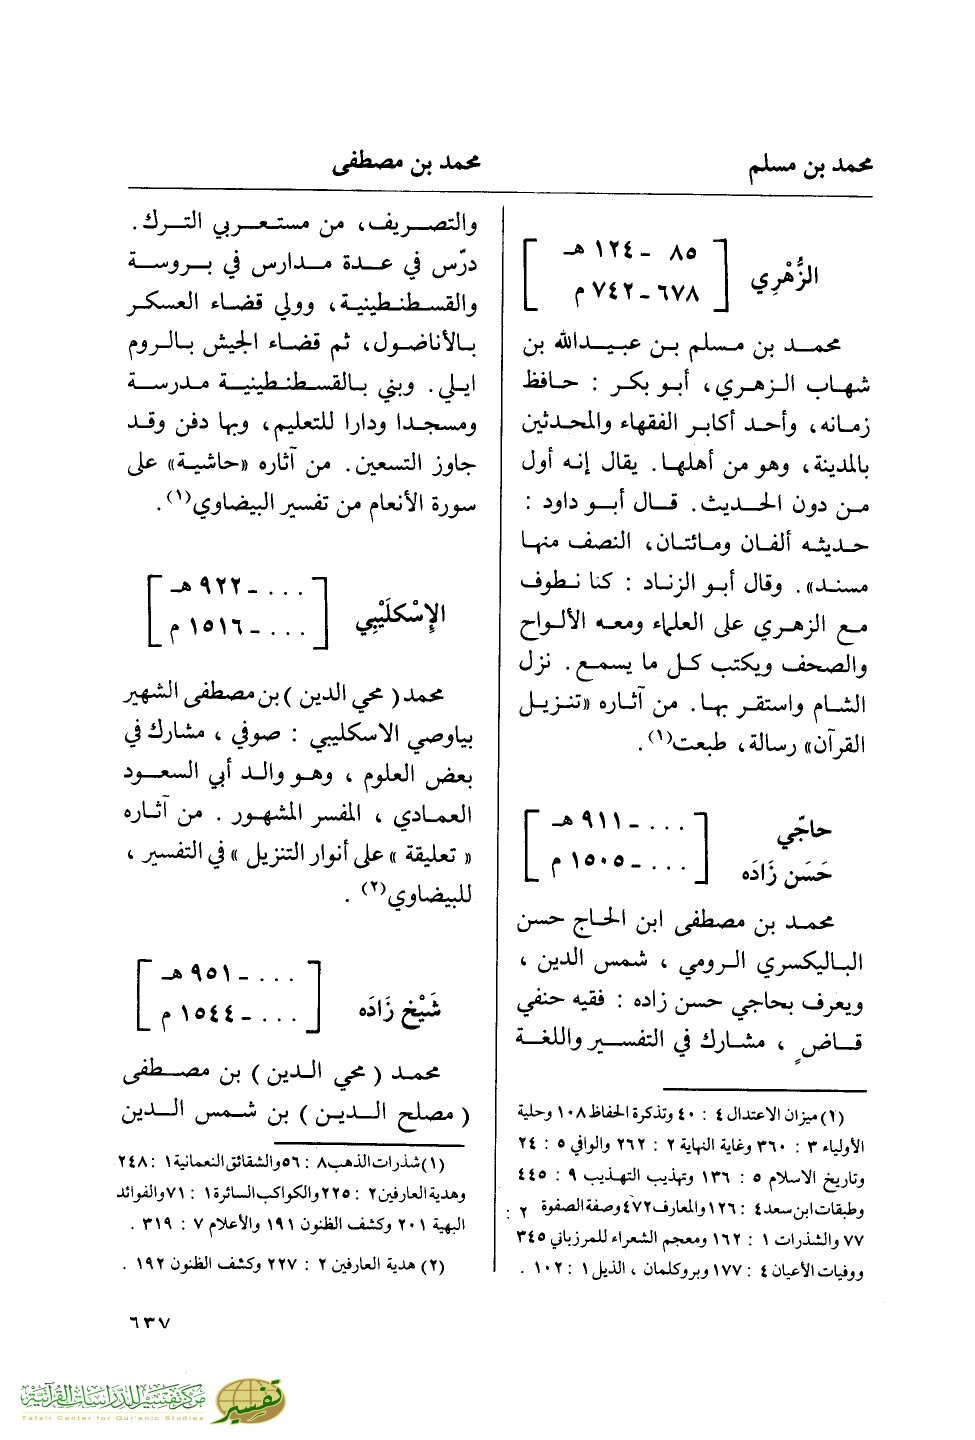 محمد بن مسلم
محمد بن مصطفى
الزُّهْرِي
٨٥ - ١٢٤ هـ
٦٧٨ - ٧٤٢ م
محمد بن مسلم بن عبيدالله بن
شهاب الزهري، أبو بكر : حافظ
زمانه، وأحد أكابر الفقهاء والمحدثين
بالمدينة، وهو من أهلها. يقال إنه أول
من دون الحديث. قال أبو داود :
حديثه ألفان ومائتان، النصف منها
مسند». وقال أبو الزناد : كنا نطوف
مع الزهري على العلماء ومعه الألواح
والصحف ويكتب كل ما يسمع. نزل
الشام واستقر بها. من آثاره «تنزيل
القرآن» رسالة، طبعت(١).
حاجّي
حَسَن زَادَه
... - ٩١١ هـ
... - ١٥٠٥ م
محمد بن مصطفى ابن الحاج حسن
الباليكسري الرومي ، شمس الدين ،
ويعرف بحاجي حسن زاده : فقيه حنفي
قاضٍ ، مشارك في التفسير واللغة
(٢) ميزان الاعتدال ٤ : ٤٠ وتذكرة الحفاظ ١٠٨ وحلية
الأولياء ٣ : ٣٦٠ وغاية النهاية ٢ : ٢٦٢ والوافي ٥ : ٢٤
وتاريخ الاسلام ٥ : ١٣٦ وتهذيب التهذيب ٩ : ٤٤٥
وطبقات ابن سعد ٤ : ١٢٦ والمعارف ٤٧٢ وصفة الصفوة ٢ :
٧٧ والشذرات ١ : ١٦٢ ومعجم الشعراء للمرزباني ٣٤٥
ووفيات الأعيان ٤ : ١٧٧ وبروكلمان ، الذيل ١ : ١٠٢ .
والتصريف، من مستعربي الترك.
درّس في عدة مدارس في بروسة
والقسطنطينية، وولي قضاء العسكر
بالأناضول، ثم قضاء الجيش بالروم
ايلي. وبني بالقسطنطينية مدرسة
ومسجدا ودارا للتعليم، وبها دفن وقد
جاوز التسعين. من آثاره «حاشية» على
سورة الأنعام من تفسير البيضاوي(١).
الإِسْكَلَيْبِي
... - ٩٢٢ هـ
... - ١٥١٦ م
محمد ( محي الدين ) بن مصطفى الشهير
بياوصي الاسكليبي : صوفي ، مشارك في
بعض العلوم ، وهو والد أبي السعود
العمادي ، المفسر المشهور . من آثاره
« تعليقة » على أنوار التنزيل » في التفسير ،
للبيضاوي(٢) .
شَيْخ زَادَه
... - ٩٥١ هـ
... - ١٥٤٤ م
محمد ( محي الدين ) بن مصطفى
( مصلح الدين ) بن شمس الدين
(١) شذرات الذهب ٨ : ٥٦ والشقائق النعمانية ١ : ٢٤٨
وهدية العارفين ٢ : ٢٢٥ والكواكب السائرة ١ : ٧١ والفوائد
البهية ٢٠١ وكشف الظنون ١٩١ والأعلام ٧ : ٣١٩ .
(٢) هدية العارفين ٢ : ٢٢٧ وكشف الظنون ١٩٢ .
٦٣٧
مركز تفسير للدراسات القرآنية
Tafsir Center for Qur'anic Studies
تفسير